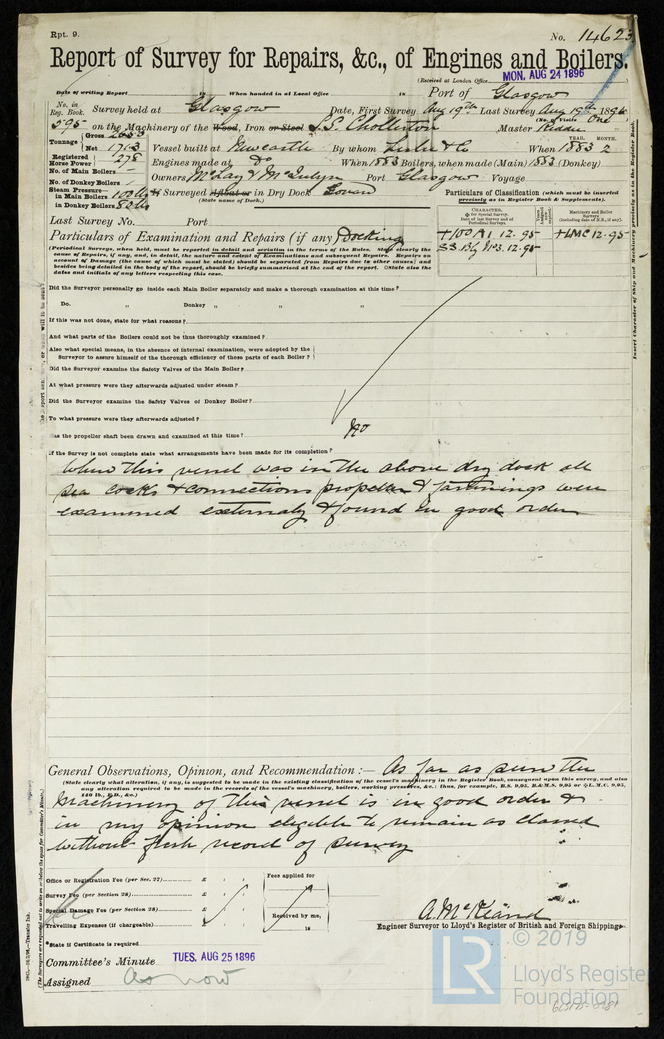 Rpt. 9.
No. 14623
Report of Survey for Repairs, &c., of Engines and Boilers.
(Received at London Office
MON. AUG 24 1896
Date of writing Report
When handed in at Local Office
Port of Glasgow
No. in Reg. Book. Survey held at Glasgow Date, First Survey Aug 19th Last Survey Aug 19th 1896
(No. of Visits One
595 on the Machinery of the Wood, Iron or Steel S.S. Chollerton Master
Tonnage Gross
Net 1713 Vessel built at Newcastle By whom Leslie & Co. When YEAR. 1883 MONTH. 2
Registered Horse Power 278 Engines made at Do When 1883 Boilers, when made (Main) 1883 (Donkey)
No. of Main Boilers
No. of Donkey Boilers
Owners McLay & McIntyre Port Glasgow Voyage
Steam Pressure—
in Main Boilers 100 lbs If Surveyed Afloat or in Dry Dock Govan
in Donkey Boilers
(State name of Dock.)
Particulars of Classification (which must be inserted precisely as in Register Book & Supplements).
Last Survey No. Port
CHARACTER.
Machinery and Boiler Surveys
+100A1 12.95
+LMC 12.95
12.95
Particulars of Examination and Repairs (if any) Docking
(Periodical Surveys, when held, must be reported in detail and seriatim in the terms of the Rules. State clearly the
cause of Repairs, if any, and, in detail, the nature and extent of Examinations and subsequent Repairs. Repairs on
account of Damage (the cause of which must be stated) should be separated from Repairs due to other causes; and
besides being detailed in the body of the report, should be briefly summarised at the end of the report. (State also the
dates and initials of any letters respecting this case.
Did the Surveyor personally go inside each Main Boiler separately and make a thorough examination at this time?
Do. " Donkey " " "
If this was not done, state for what reasons?
And what parts of the Boilers could not be thus thoroughly examined?
Also what special means, in the absence of internal examination, were adopted by the
Surveyor to assure himself of the thorough efficiency of those parts of each Boiler?
Did the Surveyor examine the Safety Valves of the Main Boiler?
At what pressure were they afterwards adjusted under steam?
Did the Surveyor examine the Safety Valves of Donkey Boiler?
To what pressure were they afterwards adjusted?
Has the propeller shaft been drawn and examined at this time? No
If the Survey is not complete state what arrangements have been made for its completion?
When this vessel was in the above dry dock all
sea cocks & connections propeller & fastenings were
examined externally & found in good order
General Observations, Opinion, and Recommendation:— As far as seen the
(State clearly what alteration, if any, is suggested to be made in the existing classification of the vessel's machinery in the Register Book, consequent upon this survey, and also
any alteration required to be made in the records of the vessel's machinery, boilers, working pressures, &c.: thus, for example, B.S. 9,95, B.&M.S. 9,95 or L.M.C. 9,95,
140 lb., &c.)
Machinery of this vessel is in good order &
in my opinion eligible to remain as classed
without fresh record of survey
Office or Registration Fee (per Sec. 27) £
Fees applied for
Survey Fee (per Section 28) £
Special Damage Fee (per Section 28) £
Received by me,
Travelling Expenses (if chargeable) £
18
Engineer Surveyor to Lloyd's Register of British and Foreign Shipping.
*State if Certificate is required
Committee's Minute TUES. AUG 25 1896
Assigned as now
LR © 2019
Lloyd's Register
Foundation